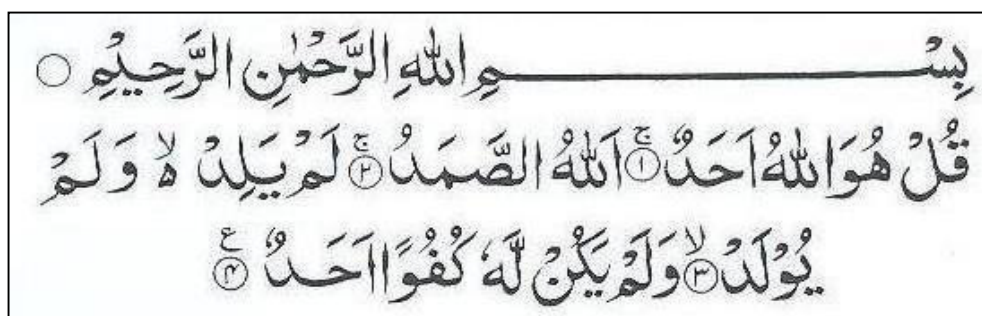 بِسْمِ اللّٰهِ الرَّحْمٰنِ الرَّحِيْمِ ۝
قُلْ هُوَ اللّٰهُ اَحَدٌ ۚ‏﴿۱﴾ اَللّٰهُ الصَّمَدُ ۚ‏﴿۲﴾ لَمْ يَلِدْ ۙ۬ وَلَمْ
يُوْلَدْ ۙ‏﴿۳﴾ وَلَمْ يَكُنْ لَّهٗ كُفُوًا اَحَدٌ ‏﴿۴﴾ ع